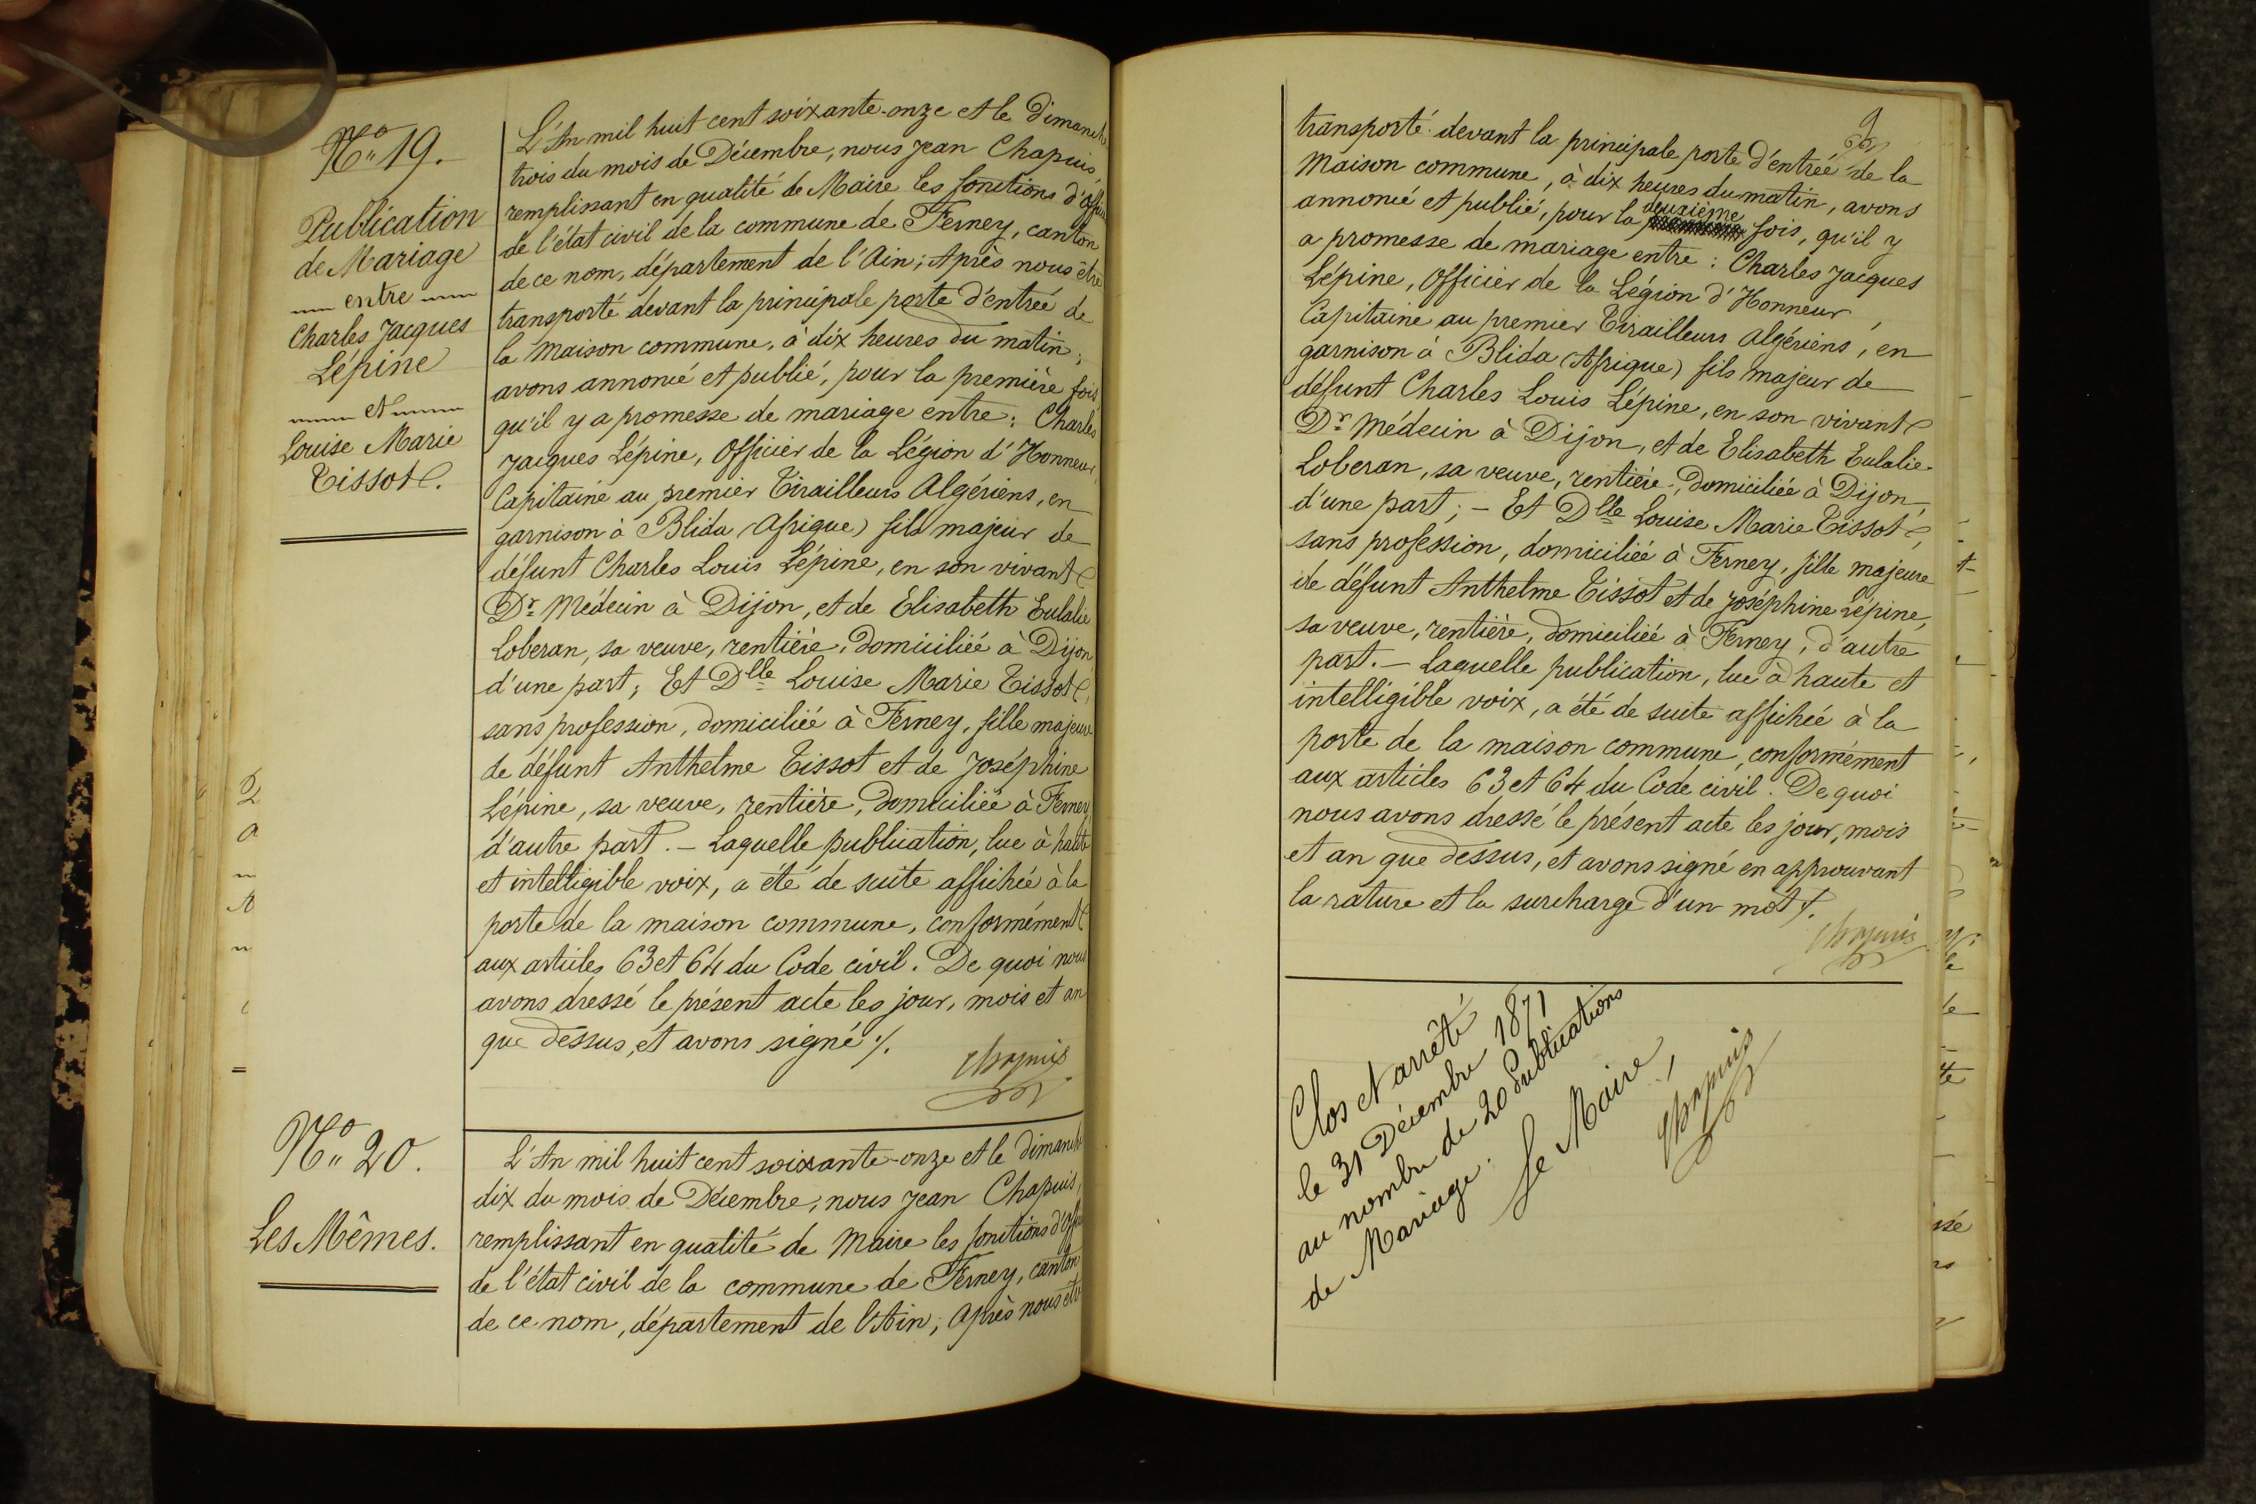 Nº 19.
Publication
de Mariage
entre
Charles Jacques
Lépine
et
Louise Marie
Tissot.
L'An mil huit cent soixante-onze et le Dimanche
trois du mois de Décembre, nous Jean Chapuis,
remplissant en qualité de Maire les fonctions d'Officier
de l'état civil de la commune de Ferney, canton
de ce nom, département de l'Ain; Après nous être
transporté devant la principale porte d'entrée de
la Maison commune, à dix heures du matin;
avons annoncé et publié, pour la première fois,
qu'il y a promesse de mariage entre: Charles
Jacques Lépine, Officier de la Légion d'Honneur,
Capitaine au premier Tirailleurs Algériens, en
garnison à Blida (Afrique) fils majeur de
défunt Charles Louis Lépine, en son vivant
Dr Médecin à Dijon, et de Élisabeth Eulalie
Loberan, sa veuve, rentière, domiciliée à Dijon
d'une part; Et Dlle Louise Marie Tissot,
sans profession, domiciliée à Ferney, fille majeure
de défunt Anthelme Tissot et de Joséphine
Lépine, sa veuve, rentière, domiciliée à Ferney
d'autre part. — Laquelle publication, lue à haute
et intelligible voix, a été de suite affichée à la
porte de la maison commune, conformément
aux articles 63 et 64 du Code civil. De quoi nous
avons dressé le présent acte les jour, mois et an
que dessus, et avons signé ./.
Chapuis
Nº 20.
Les Mêmes.
L'An mil huit cent soixante-onze et le dimanche
dix du mois de Décembre, nous Jean Chapuis,
remplissant en qualité de Maire les fonctions d'Officier
de l'état civil de la commune de Ferney, canton
de ce nom, département de l'Ain; Après nous être
9
transporté devant la principale porte d'entrée de la
Maison commune, à dix heures du matin, avons
annoncé et publié, pour la deuxième fois, qu'il y
a promesse de mariage entre: Charles Jacques
Lépine, Officier de la Légion d'Honneur,
Capitaine au premier Tirailleurs Algériens, en
garnison à Blida (Afrique) fils majeur de
défunt Charles Louis Lépine, en son vivant
Dr Médecin à Dijon, et de Elisabeth Eulalie
Loberan, sa veuve, rentière, domiciliée à Dijon,
d'une part; — Et Dlle Louise Marie Tissot,
sans profession, domiciliée à Ferney, fille majeure
de défunt Anthelme Tissot et de Joséphine Lépine,
sa veuve, rentière, domiciliée à Ferney, d'autre
part. — Laquelle publication, lue à haute et
intelligible voix, a été de suite affichée à la
porte de la maison commune, conformément
aux articles 63 et 64 du Code civil. De quoi
nous avons dressé le présent acte les jour, mois
et an que dessus, et avons signé en approuvant
la rature et la surcharge d'un mot ./.
Chapuis
Clos et arrêté
le 31 Décembre 1871
au nombre de 20 Publications
de Mariage.
Le Maire,
Chapuis